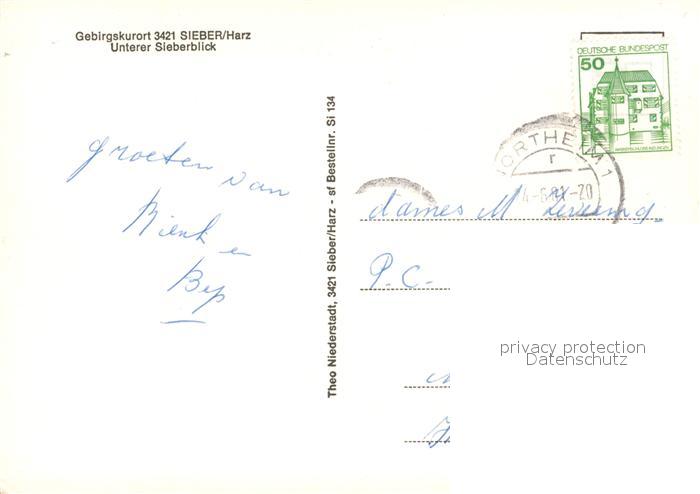 Gebirgskurort 3421 SIEBER/Harz
Unterer Sieberblick
groeten van
en
Bep
Theo Niederstadt, 3421 Sieber/Harz - sf Bestellnr. Si 134
DEUTSCHE BUNDESPOST
50
NORTHEIM 1
r
-20
dames M
P.C.
privacy protection
Datenschutz